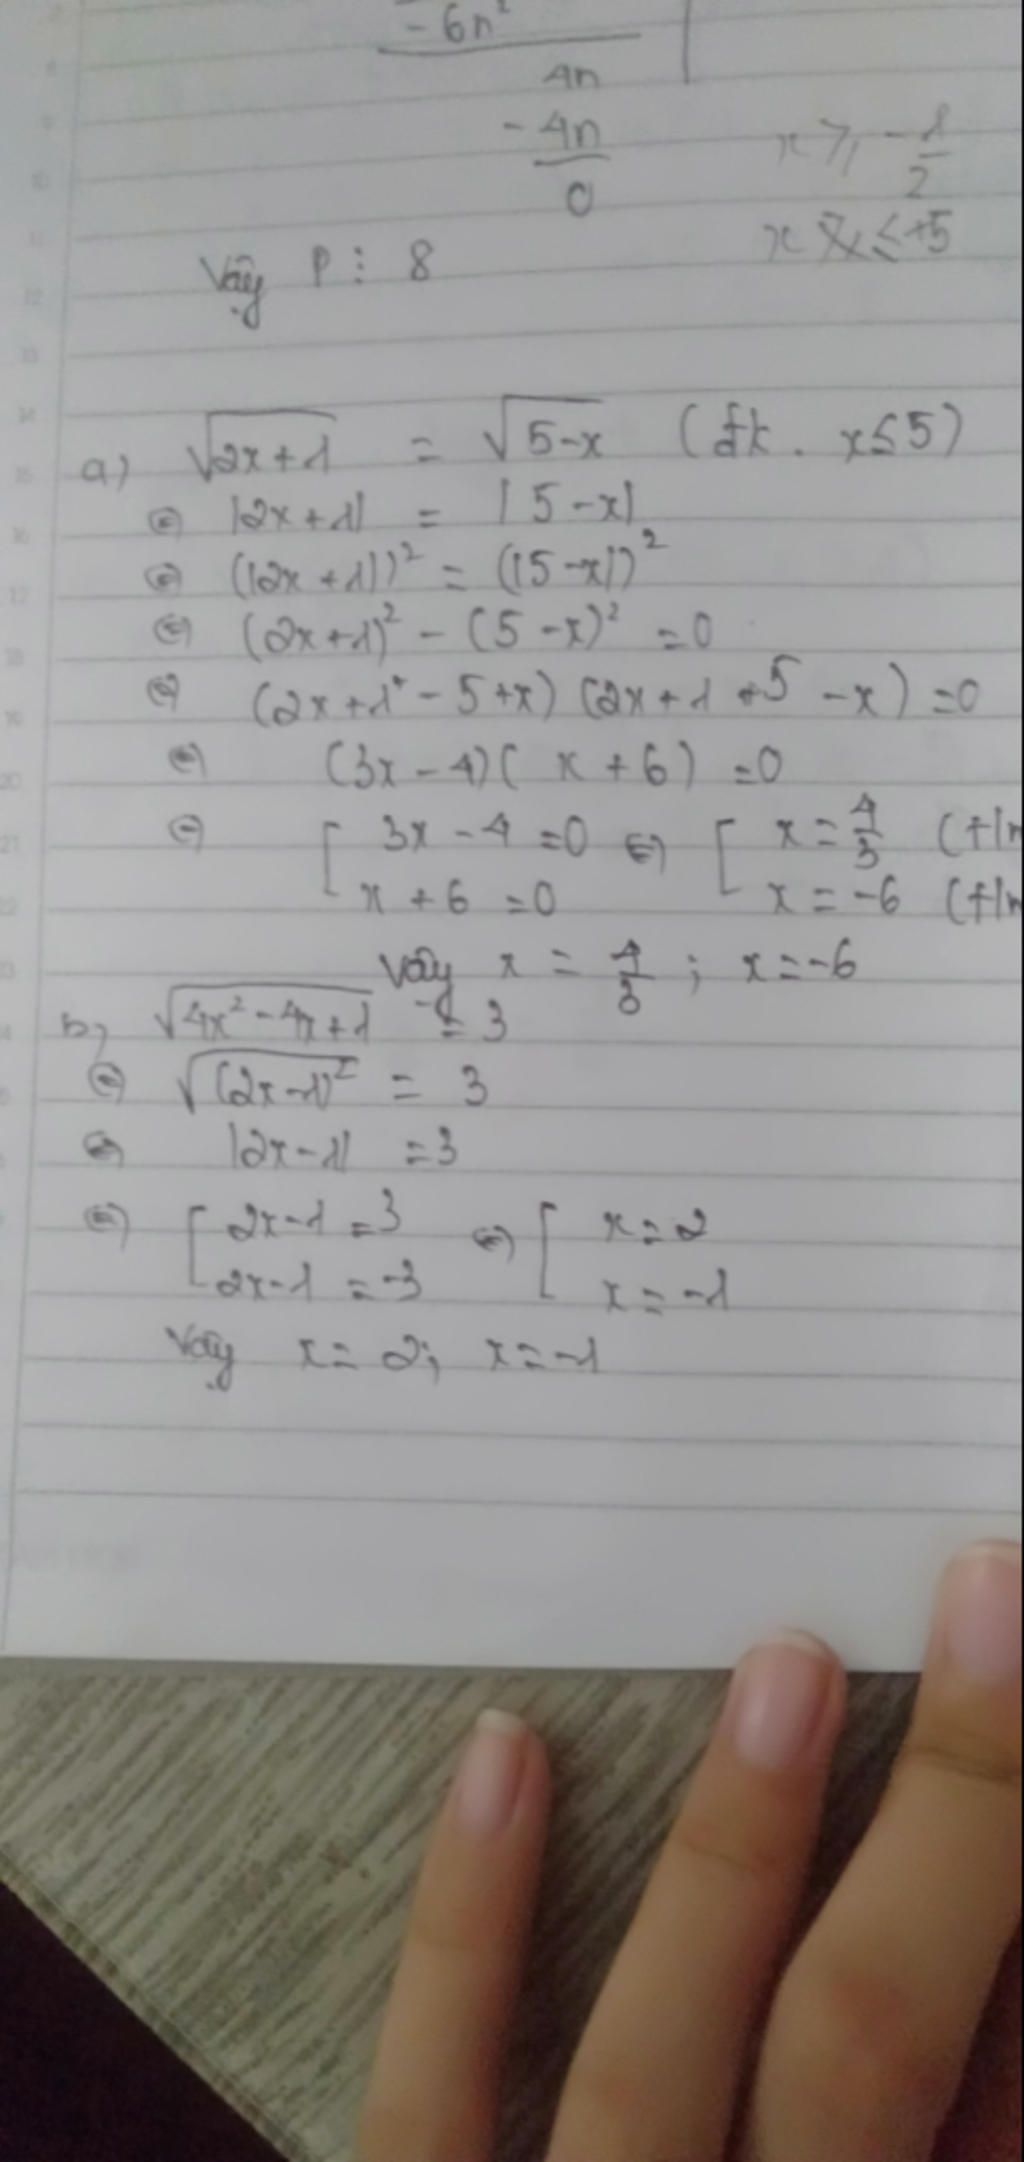 - 6n²
4n
- 4n
0
x ≥ - 1/2
x ≤ +5
Vậy P ⋮ 8
a) √(2x+1) = √(5-x) (đk. x≤5)
⇔ |2x+1| = |5-x|
⇔ (|2x+1|)² = (|5-x|)²
⇔ (2x+1)² - (5-x)² = 0
⇔ (2x+1 - 5+x) (2x+1 +5 -x) = 0
⇔ (3x-4)( x+6) = 0
⇔ [ 3x-4 = 0 ⇔ [ x = 4/3 (t/m
x+6 = 0 x = -6 (t/m
Vậy x = 4/3 ; x = -6
b) √(4x² - 4x+1) = 3
⇔ √((2x-1)²) = 3
⇔ |2x-1| = 3
⇔ [ 2x-1 = 3 ⇔ [ x = 2
2x-1 = -3 x = -1
Vậy x = 2; x = -1